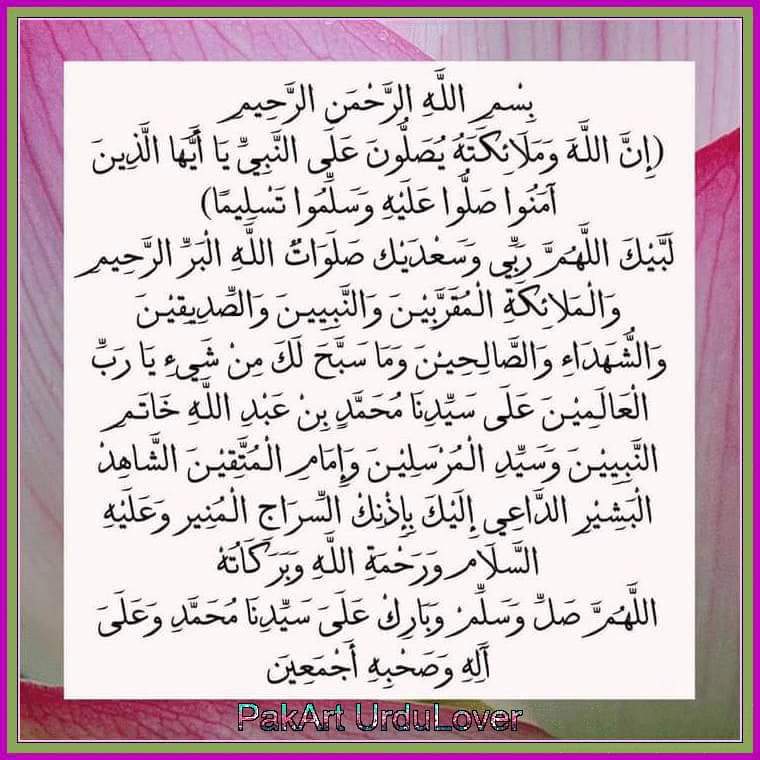 بِسْمِ اللَّهِ الرَّحْمَنِ الرَّحِيمِ
(إِنَّ اللَّهَ وَمَلَائِكَتَهُ يُصَلُّونَ عَلَى النَّبِيِّ يَا أَيُّهَا الَّذِينَ
آمَنُوا صَلُّوا عَلَيْهِ وَسَلِّمُوا تَسْلِيمًا)
لَبَّيْكَ اللَّهُمَّ رَبِّي وَسَعْدَيْكَ صَلَوَاتُ اللَّهِ الْبَرِّ الرَّحِيمِ
وَالْمَلَائِكَةِ الْمُقَرَّبِيْنَ وَالنَّبِيِينَ وَالصِّدِيقِيْنَ
وَالشُّهَدَاءِ وَالصَّالِحِيْنَ وَمَا سَبَّحَ لَكَ مِنْ شَيءٍ يَا رَبِّ
الْعَالَمِيْنَ عَلَى سَيِّدِنَا مُحَمَّدٍ بِنْ عَبْدِ اللَّهِ خَاتَمِ
النَّبِيِيْنَ وَسَيِّدِ الْمُرْسَلِيْنَ وَإِمَامِ الْمُتَّقِيْنَ الشَّاهِدْ
الْبَشِيْرِ الدَّاعِي إِلَيْكَ بِإِذْنِكْ السِّرَاجِ الْمُنِيرِ وَعَلَيْهِ
السَّلَامِ وَرَحْمَةِ اللَّهِ وَبَرَكَاتُهْ
اللَّهُمَّ صَلِّ وَسَلِّمْ وَبَارِكْ عَلَىَ سَيِّدِنَا مُحَمَّدِ وَعَلَىَ
آلِهِ وَصَحْبِهِ أَجْمَعِينَ
PakArt UrduLover